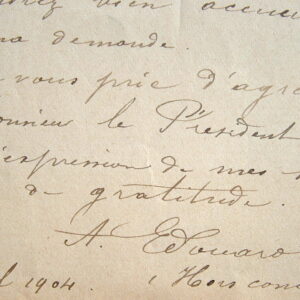 bien accue
ma demande.
vous prie d'agré
onsieur le Président
l'expression de mes
de gratitude.
A. Edouard
l 1904. (Hors conc